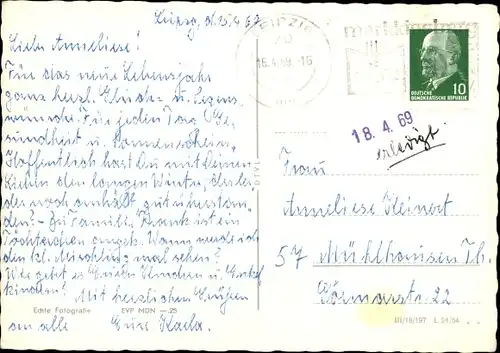 Leipzig, d. 15.4.69
Liebe Anneliese!
Für das neue Lebensjahr
ganz herzl. Glück- u. Segens-
wünsche. Für jeden Tag Ge-
sundheit u. Sonnenschein.
Hoffentlich hast Du mit Deinen
Lieben den langen Winter, der lei-
der noch anhält gut überstan-
den? - Zu Familie Frank ist ein
Töchterchen angek. Wann werde ich
den kl. Mischling mal sehen?
Wie geht es Euren Kindern u. Enkel-
kindern? Mit herzlichen Grüßen
an alle Eure Karla.
Echte Fotografie EVP MDN -.25
LEIPZIG
16.4.69.-16
DEUTSCHE
DEMOKRATISCHE REPUBLIK 10
18. 4. 69
erledigt
Frau
Anneliese Kleinert
57 Mühlhausen Th.
Görmarstr. 22
III/18/197